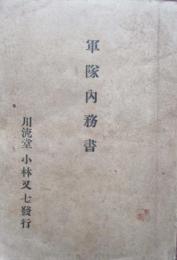 軍隊內務書
川流堂 小林又七發行